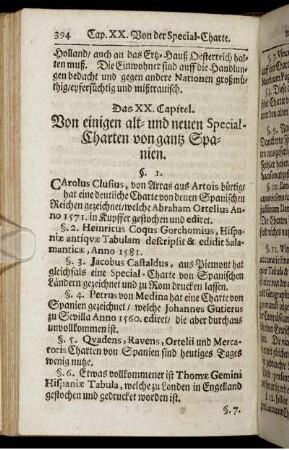 394 Cap. XX. Von der Special-Charte.
Holland/ auch an das Ertz-Hauß Oesterreich hal-
ten muß. Die Einwohner sind auff die Handlun-
gen bedacht und gegen andere Nationen großmü-
thig/eyfersüchtig und mißtrauisch.
Das XX. Capitel.
Von einigen alt- und neuen Special-
Charten von gantz Spa-
nien.
§. 1.
CArolus Clusius, von Atras aus Artois bürtig/
hat eine deutliche Charte von denen Spanischen
Reichen gezeichnet/welche Abraham Ortelius An-
no 1571. in Kupffer gestochen und ediret.
§. 2. Heinricus Coqus Gorchomius, Hispa-
niæ antiqvæ Tabulam descripsit & edidit Sala-
manticæ, Anno 1581.
§. 3. Jacobus Castaldus, aus Piemont hat
gleichfals eine Special-Charte von Spanischen
Ländern gezeichnet und zu Rom drucken lassen.
§. 4. Petrus von Medina hat eine Charte von
Spanien gezeichnet/ welche Johannes Gutierus
zu Sevilla Anno 1560. ediret/ die aber durchaus
unvollkommen ist.
§. 5. Qvadens, Ravens, Ortelii und Merca-
toris Charten von Spanien sind heutiges Tages
wenig nutze.
§. 6. Etwas vollkommener ist Thomæ Gemini
Hispaniæ Tabula, welche zu Londen in Engelland
gestochen und gedrucket worden ist.
§. 7.